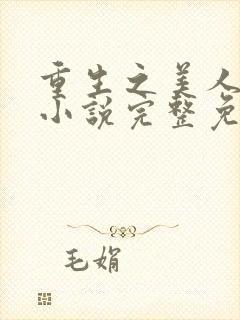 重生之美人
小说完整免
毛娟